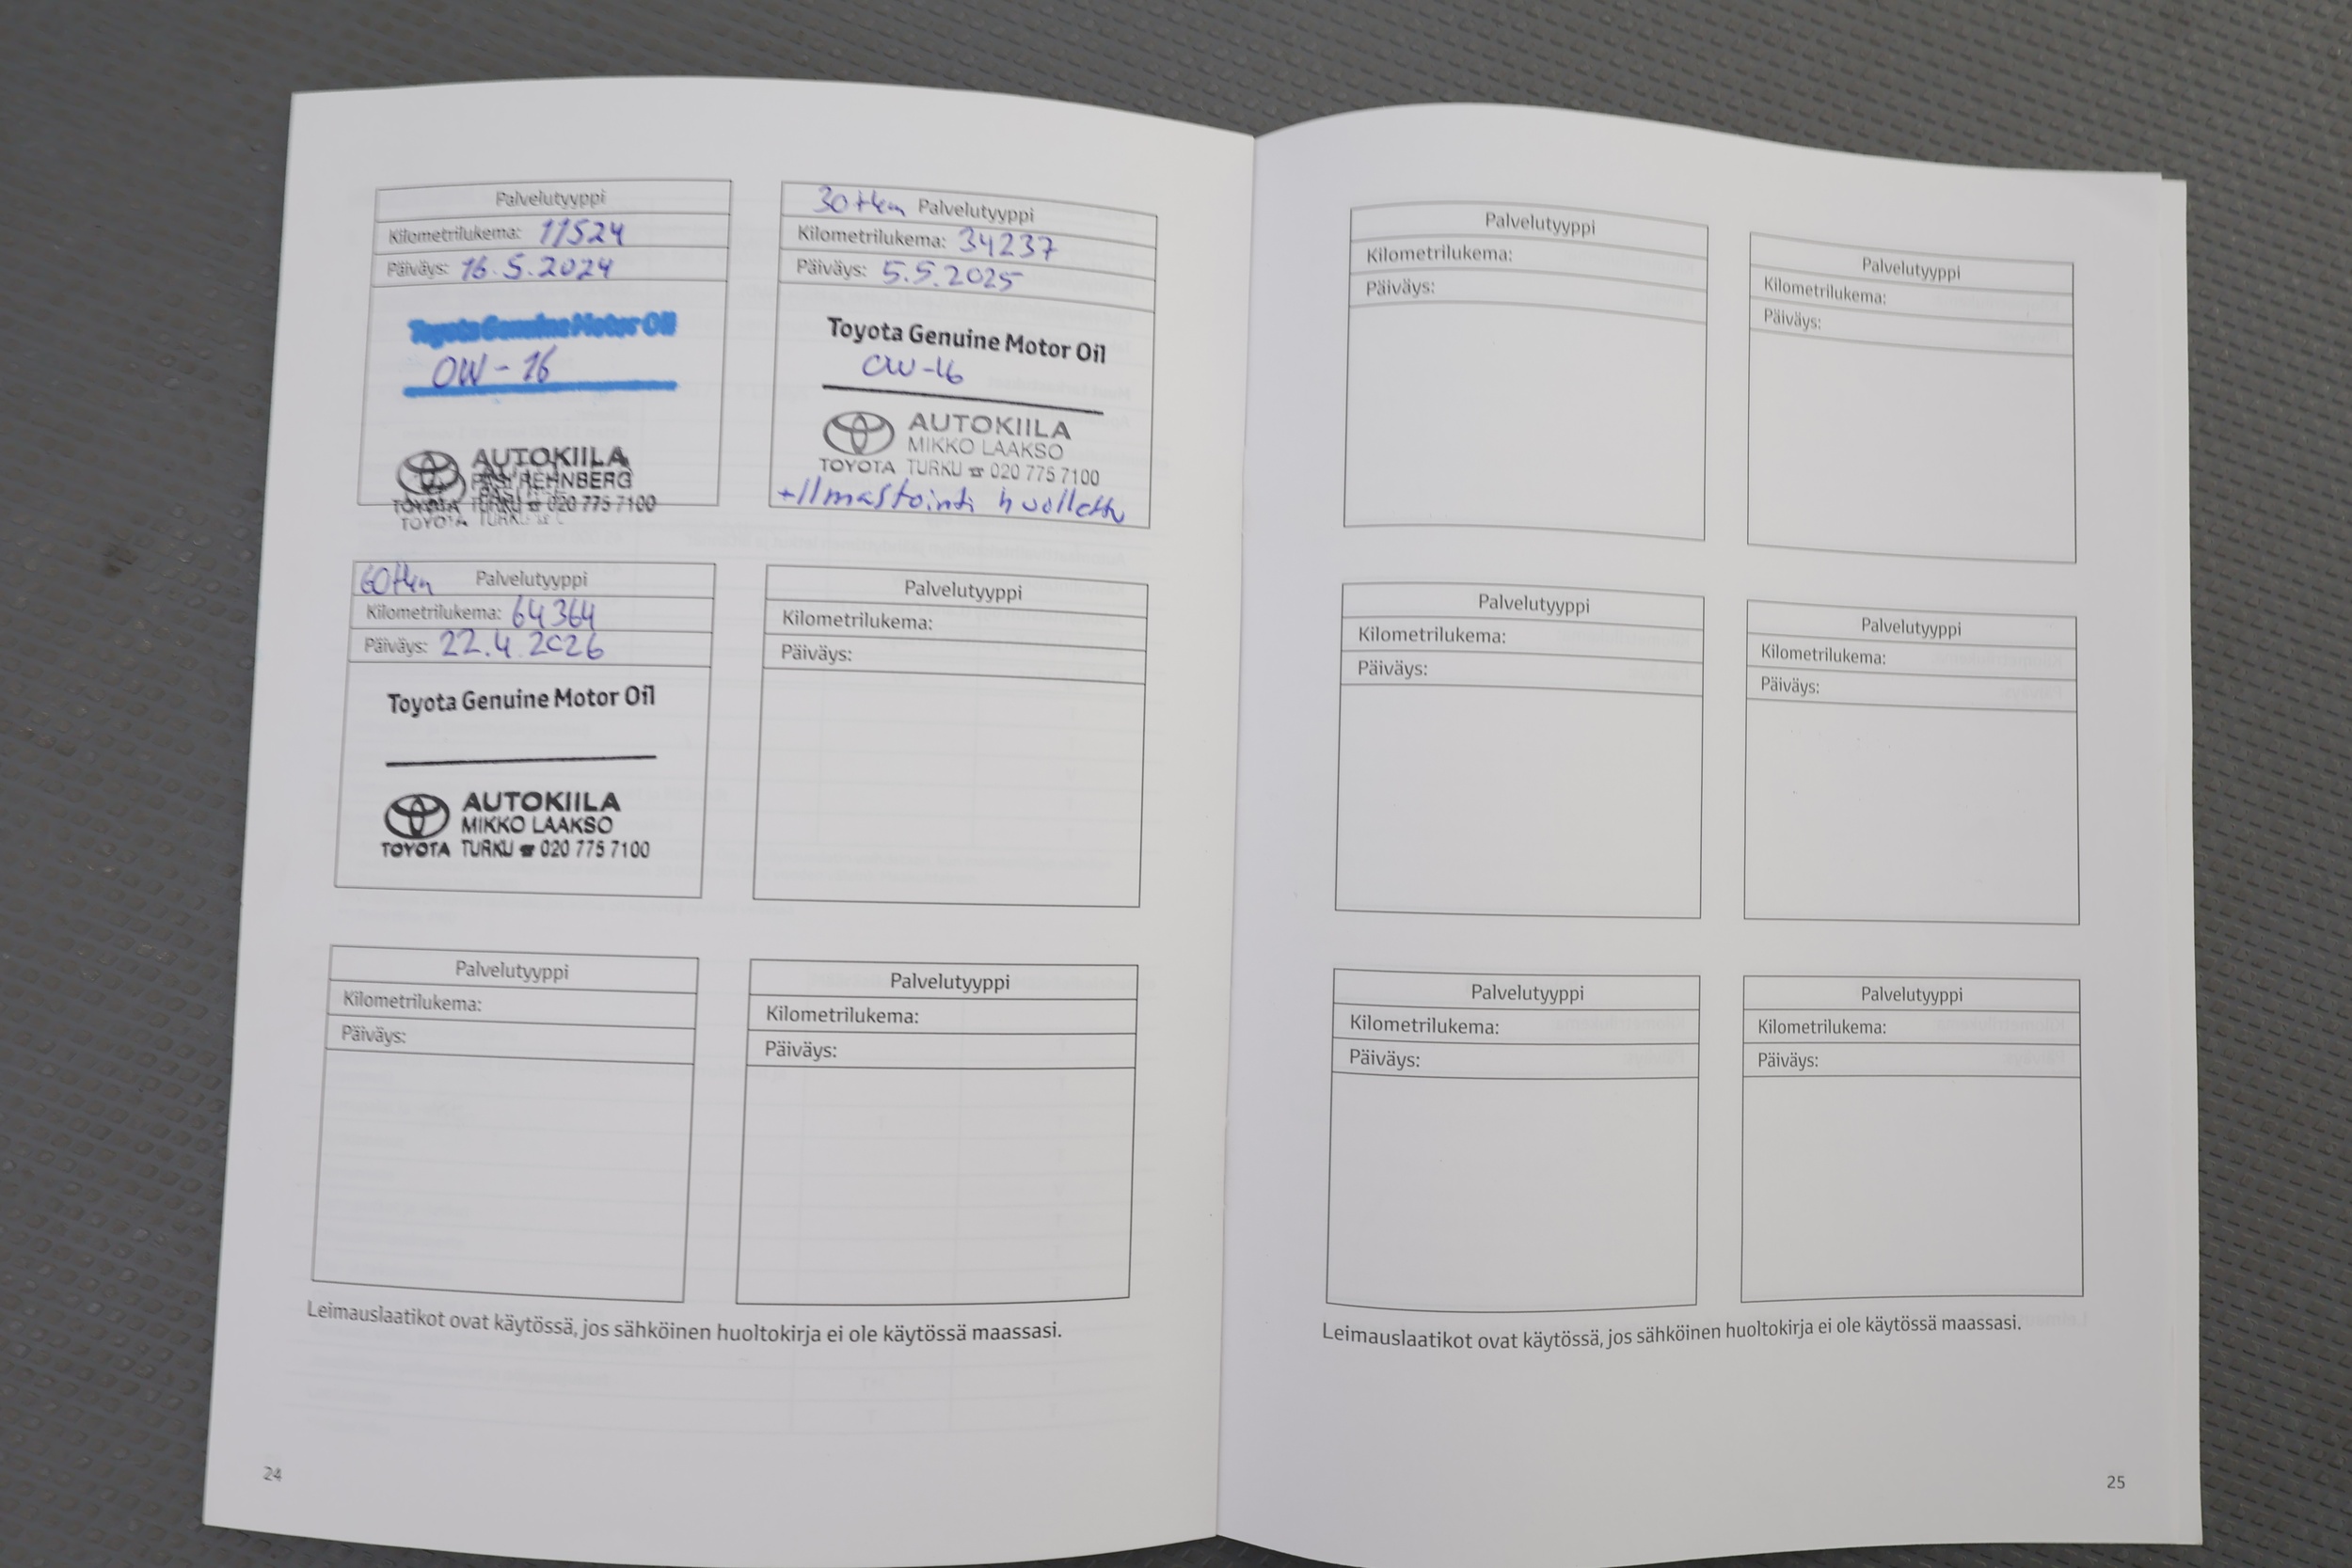 Palvelutyyppi
Kilometrilukema: 11524
Päiväys: 16.5.2024
Toyota Genuine Motor Oil
0W-16
AUTOKIILA
PASI REHNBERG
TOYOTA TURKU ☎ 020 775 7100
TOYOTA TURKU
30tkm Palvelutyyppi
Kilometrilukema: 34237
Päiväys: 5.5.2025
Toyota Genuine Motor Oil
0W-16
AUTOKIILA
MIKKO LAAKSO
TOYOTA TURKU ☎ 020 775 7100
+Ilmastointi huollettu
60tkm Palvelutyyppi
Kilometrilukema: 64364
Päiväys: 22.4.2026
Toyota Genuine Motor Oil
AUTOKIILA
MIKKO LAAKSO
TOYOTA TURKU ☎ 020 775 7100
Palvelutyyppi
Kilometrilukema:
Päiväys:
Palvelutyyppi
Kilometrilukema:
Päiväys:
Palvelutyyppi
Kilometrilukema:
Päiväys:
Leimauslaatikot ovat käytössä, jos sähköinen huoltokirja ei ole käytössä maassasi.
24
Palvelutyyppi
Kilometrilukema:
Päiväys:
Palvelutyyppi
Kilometrilukema:
Päiväys:
Palvelutyyppi
Kilometrilukema:
Päiväys:
Palvelutyyppi
Kilometrilukema:
Päiväys:
Palvelutyyppi
Kilometrilukema:
Päiväys:
Palvelutyyppi
Kilometrilukema:
Päiväys:
Leimauslaatikot ovat käytössä, jos sähköinen huoltokirja ei ole käytössä maassasi.
25